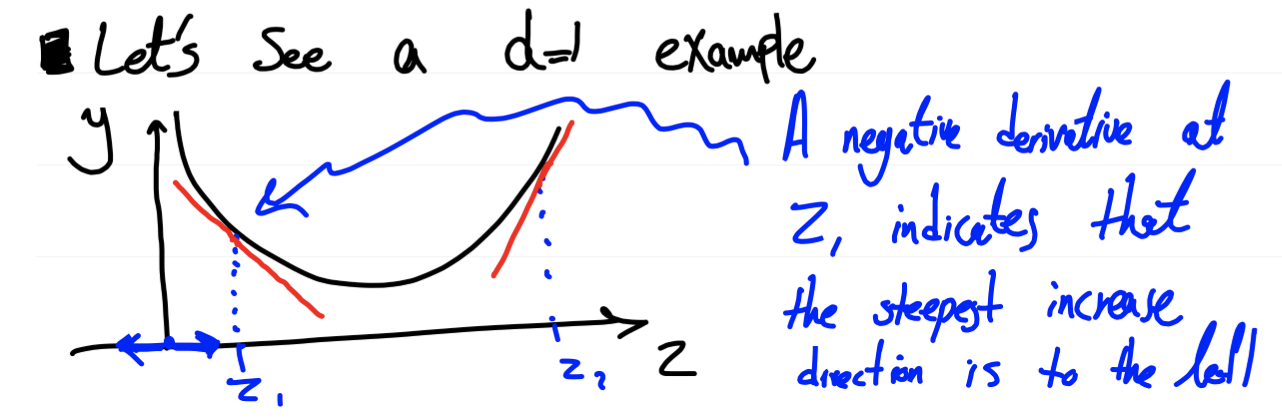 Let's See a d=1 example
y
A negative derivative at
z₁ indicates that
the steepest increase
direction is to the left
z
z₁
z₂